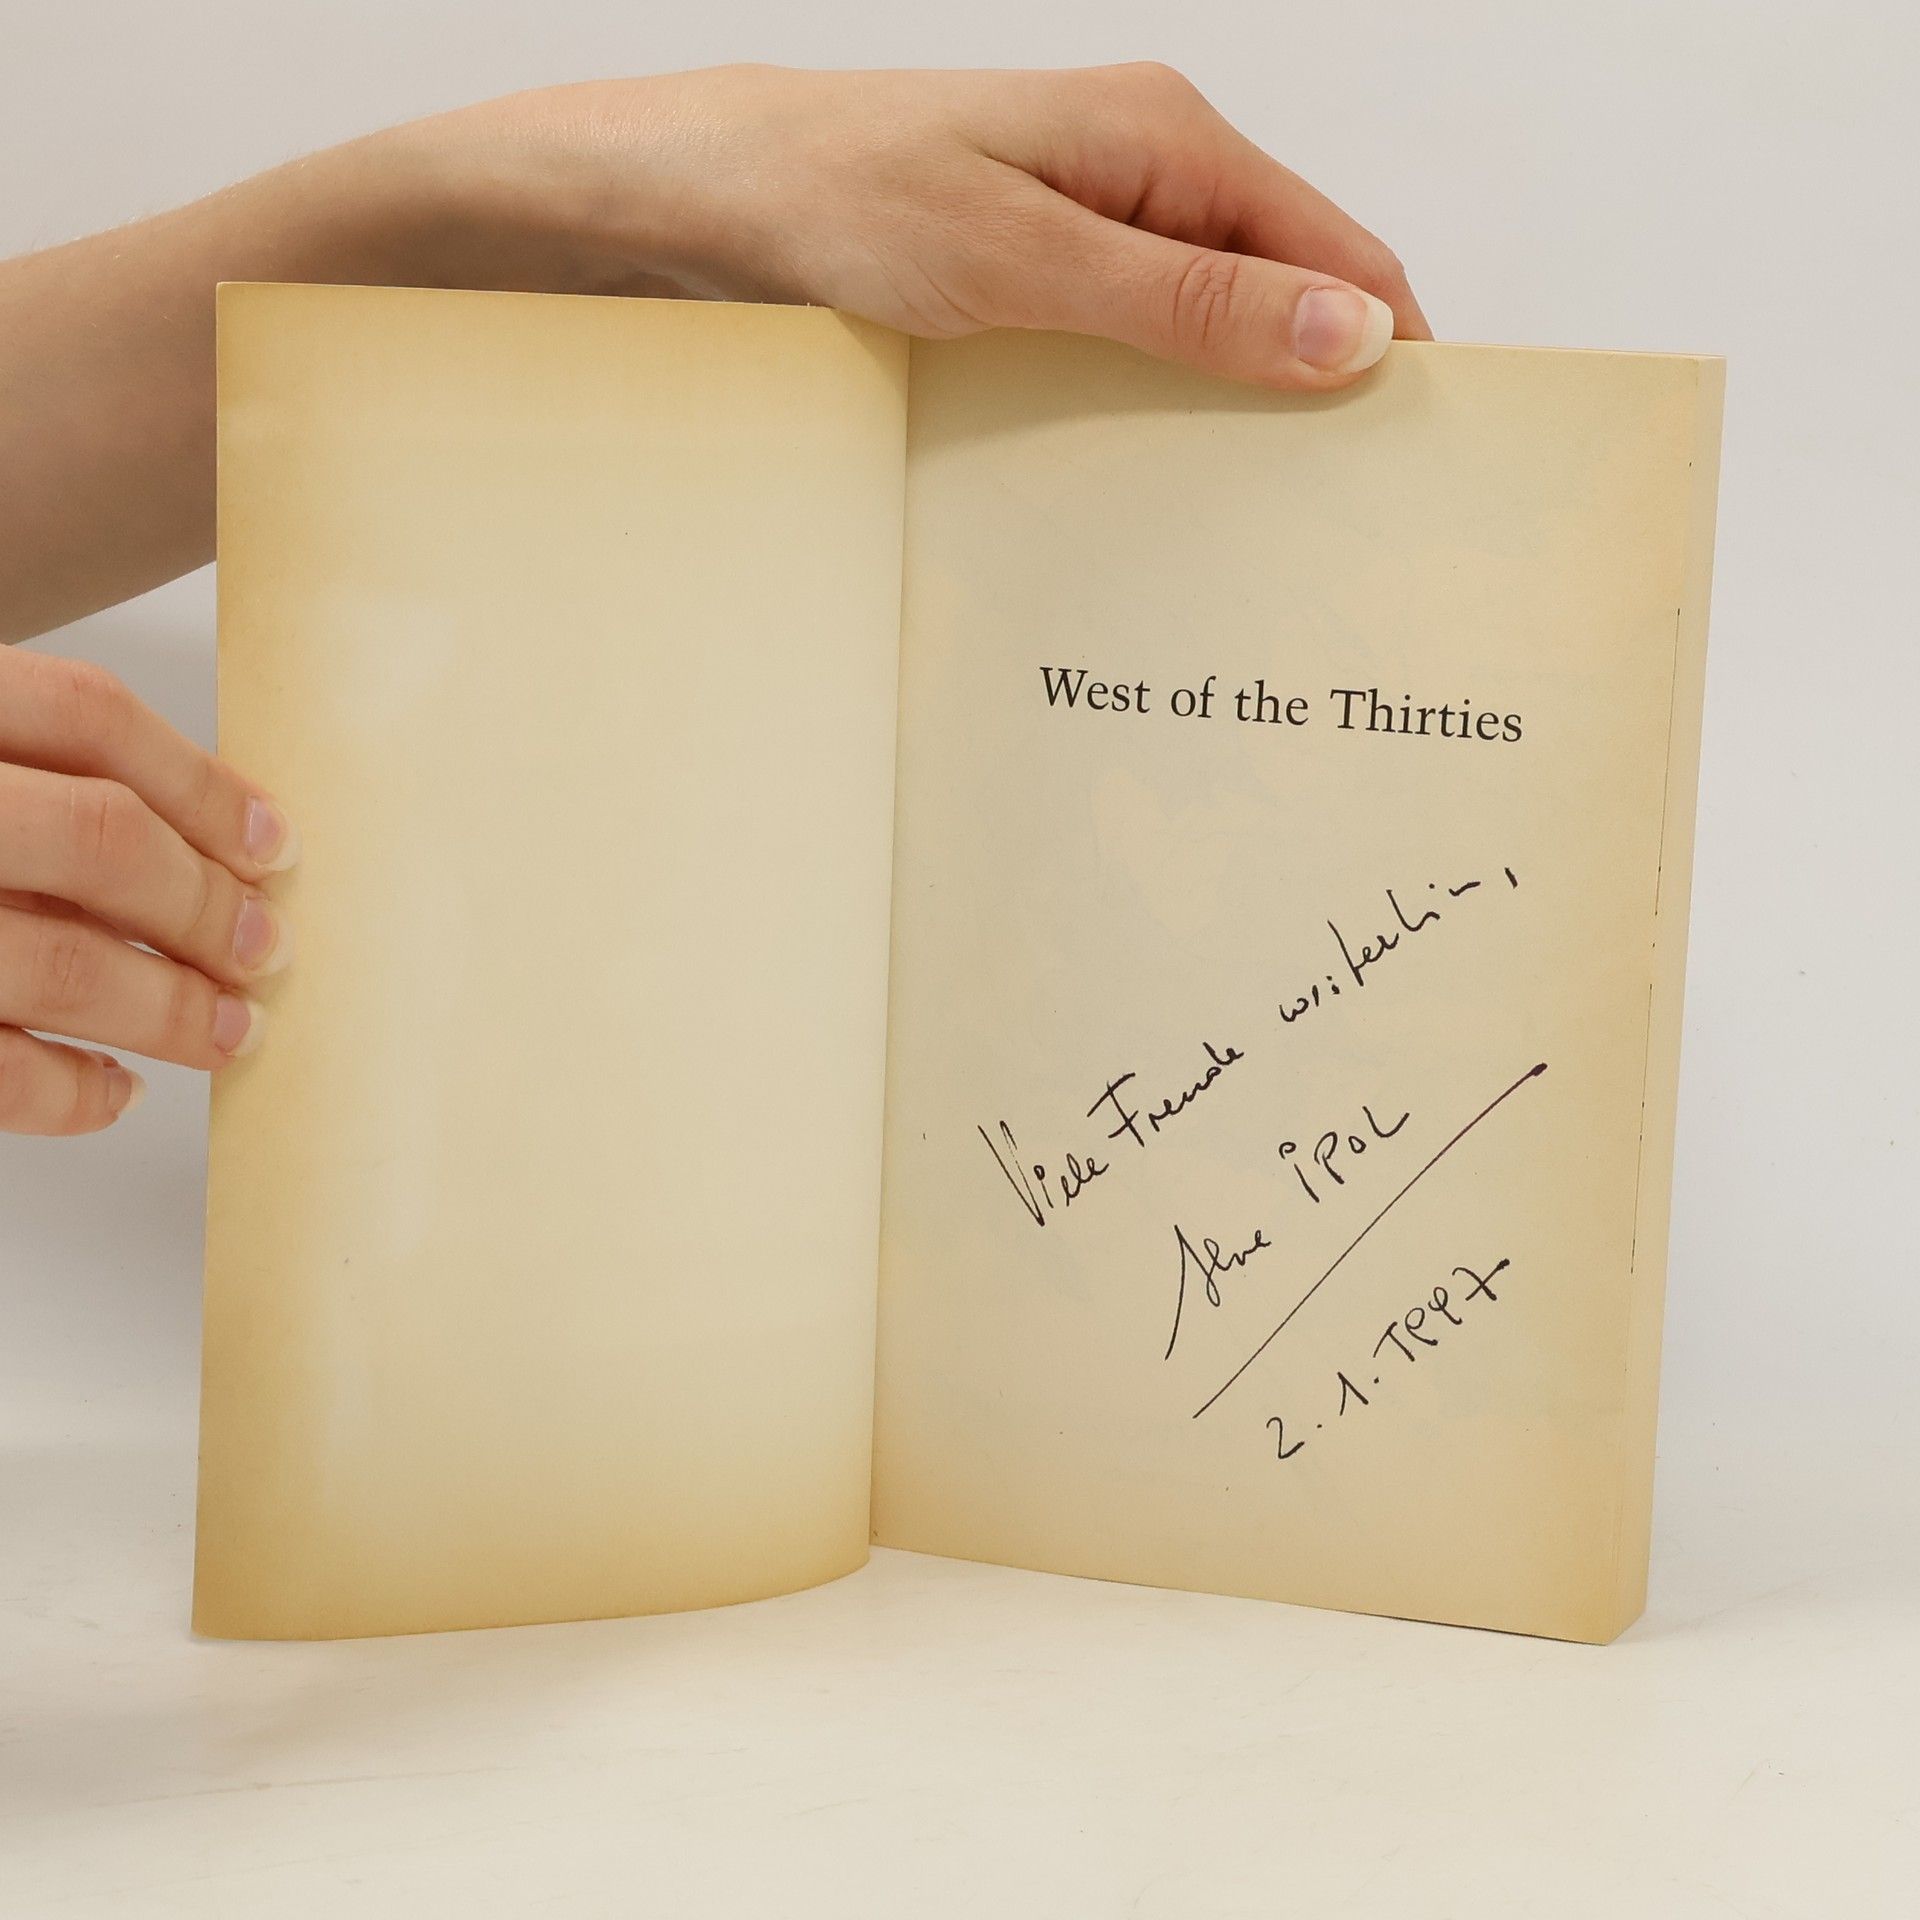 West of the Thirties
Viele Freude weiterhin,
İPOL
2.1.